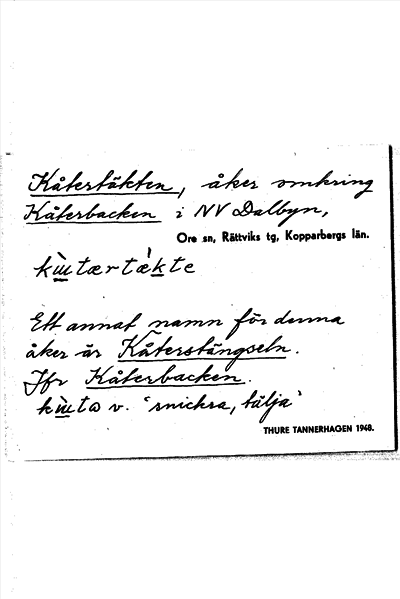 Kåtertäkten, åker omkring
Kåterbacken i NV Dalbyn,
Ore sn, Rättviks tg, Kopparbergs län.
Ett annat namn för denna
åker är Kåterstängseln.
Jfr Kåterbacken.
v. 'snickra, tälja'
THURE TANNERHAGEN 1948.